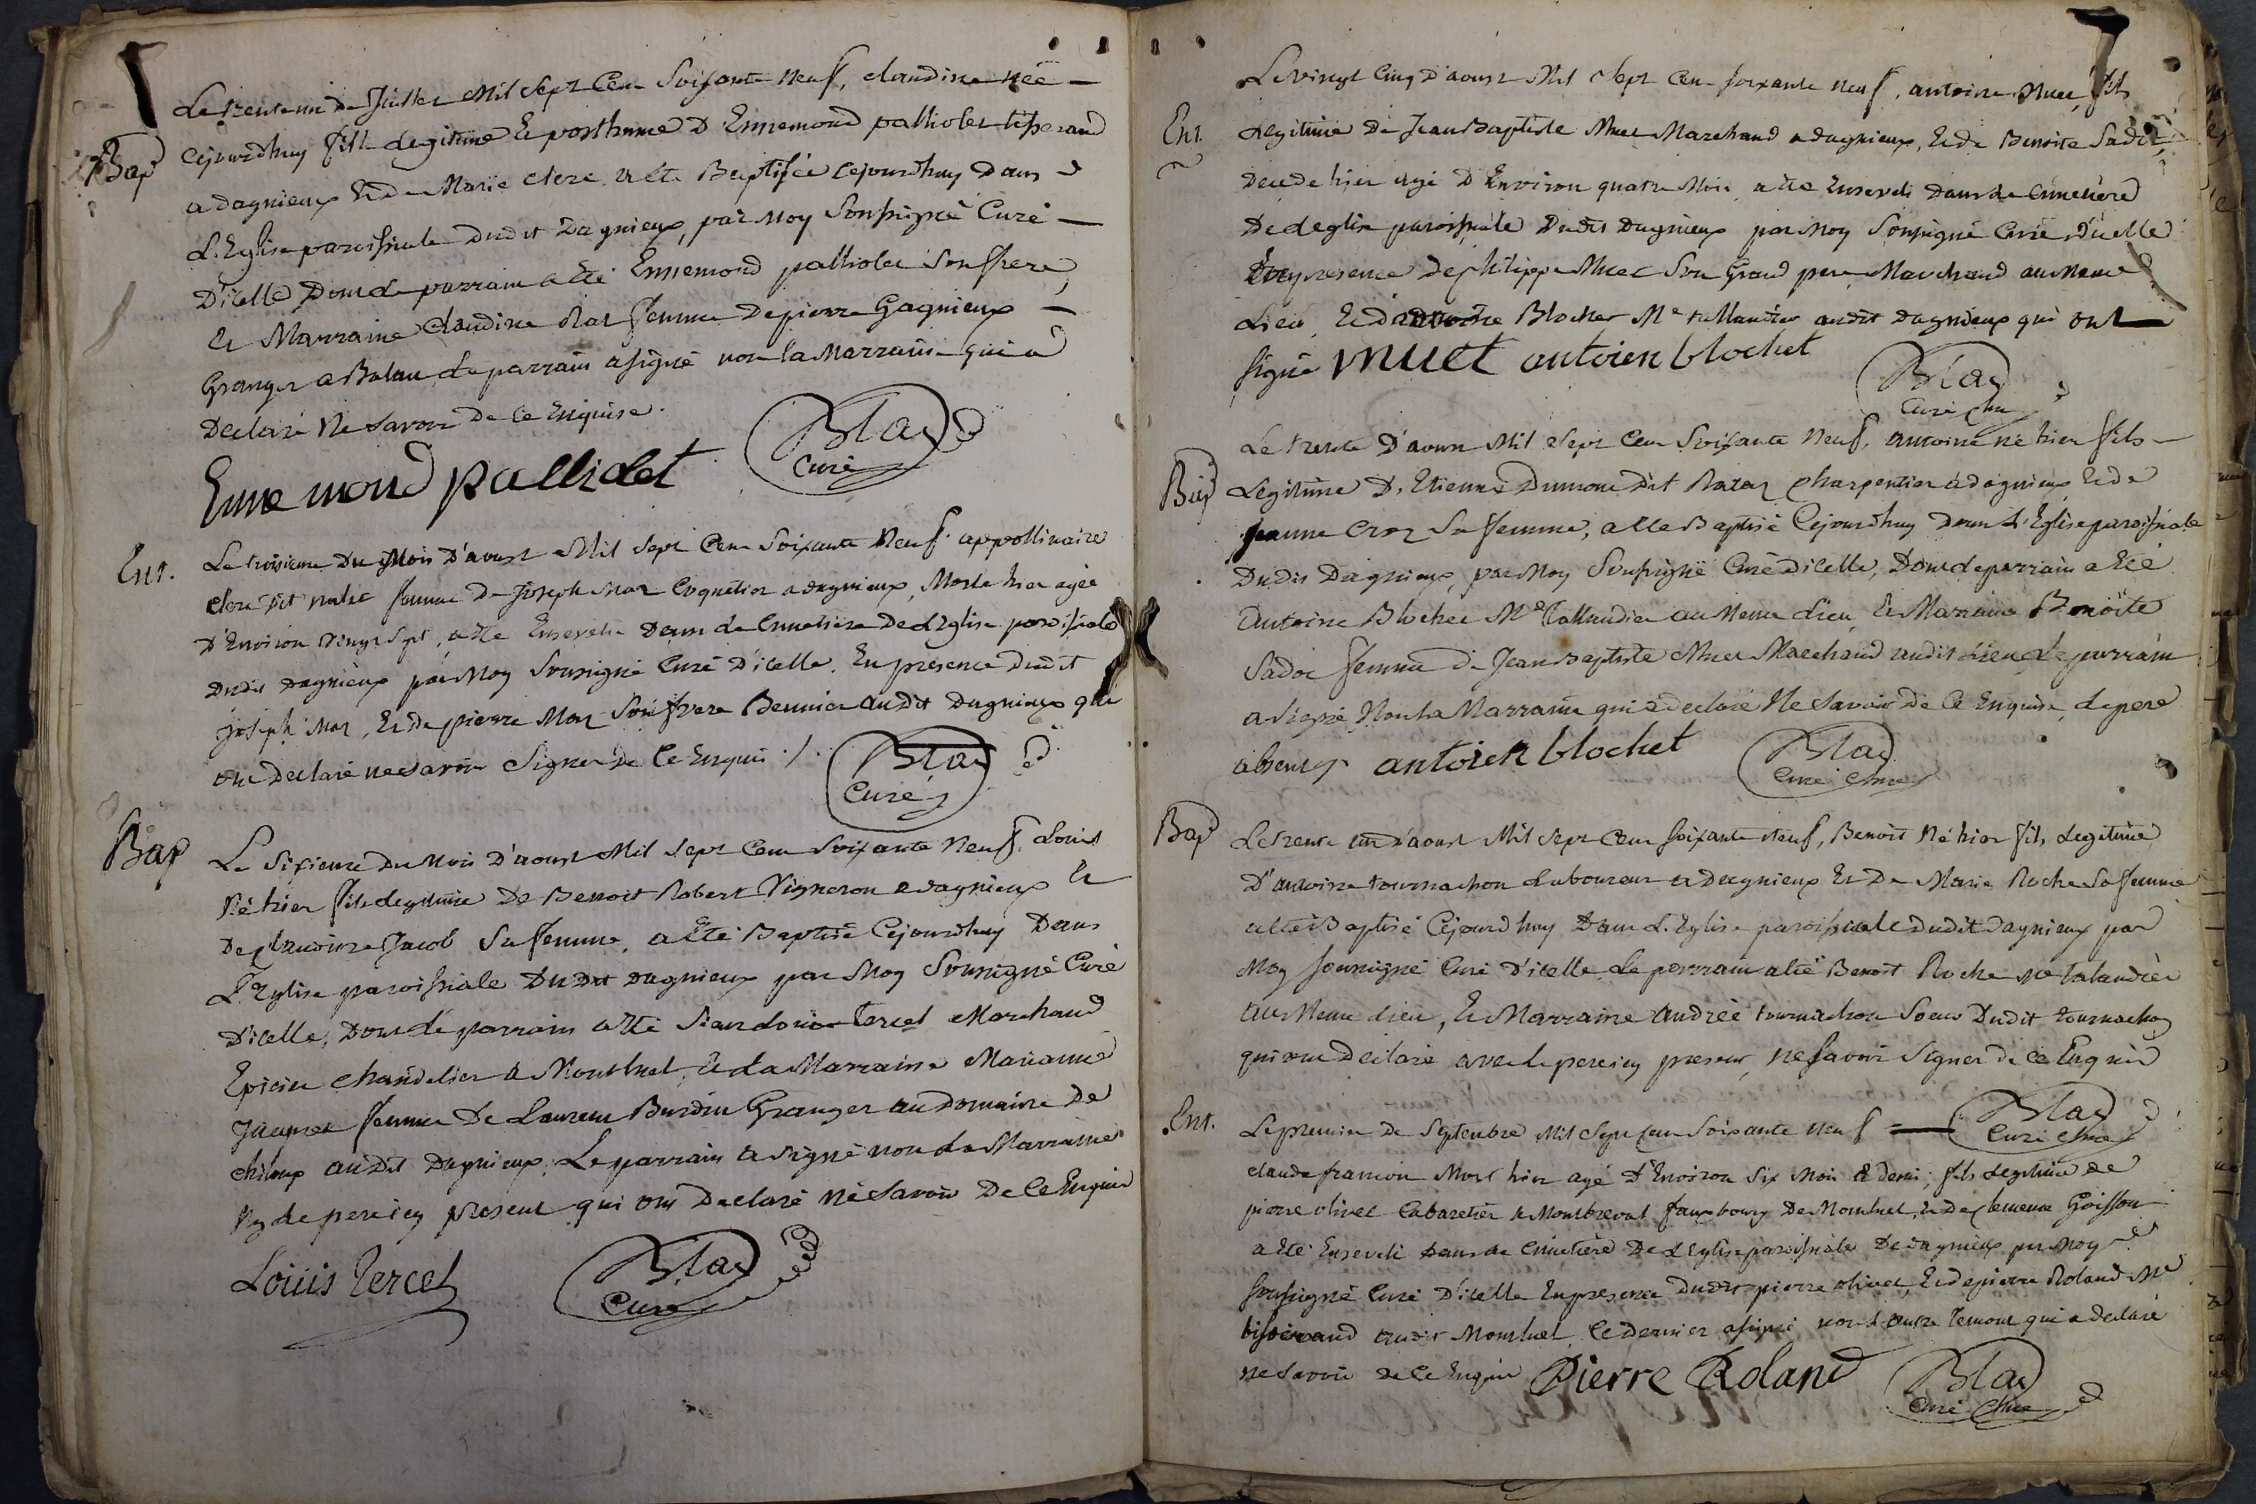 Le trente un de Juillet Mil Sept Cent Soixante neuf, claudine née
Bap
cejourdhuy fille Legitime Et posthume D'Ennemond palliolet tisserand
a dagnieux Et de Marie clere a été Baptisée cejourdhuy dans
L'Eglise paroissiale dudit Dagnieux, par Moy Soussigné Curé
D'icelle Dont Le parrain a été Ennemond palliolet Son frere,
et Marraine Claudine Mas femme De pierre Gagnieux
Granger a Balan Le parrain a signé non la Marraine qui a
Declaré Ne Savoir De ce Enquise.
Ennemond pallidet
Blad
Curé
Ent.
Le troisieme Du Mois D'aoust Mil Sept Cent Soixante Neuf. appollinaire
clere dit femme De Joseph Mas Coquetier a dagnieux, Morte hier agée
D'Environ vingt Sept, a été Ensevelie Dans Le Cimetiere De L'Eglise paroissiale
Dudit dagnieux par Moy Soussigné Curé D'icelle. En presence Dudit
Joseph Mas, Et De pierre Mas Son frere Bennier audit Dagnieux qui
ont Declaré ne Savoir Signer De Ce Enquis
Blad
Curé
Bap
Le Sixieme Du Mois D'aoust Mil Sept Cent Soixante Neuf, Louis
Né hier fils Legitime De Benoit Robert Vigneron a dagnieux Et
De Jacob Sa femme, a Eté Baptisé Cejourdhuy Dans
L'Eglise paroissiale Dudit Dagnieux par Moy Soussigné Curé
D'icelle, Dont Le parrain a Eté Sieur Louis Tercet Marchand
Epicier Chandelier a Montluel, Et La Marraine Marianne
Jacquet femme De Laurent Burdin Granger au Domaine De
audit Dagnieux, Le parrain a Signé non La Marraine
Ny Le pere icy present qui ont Declaré né Savoir De Ce Enquis
Louis Tercet
Blad
Curé
Le vingt Cinq D'aoust Mil Sept Cent Soixante neuf, antoine Muet, fils
Ent.
Legitime De Jean Baptiste Muet Marchand a dagnieux, Et De Benoite Sadot,
Decedé hier agé D'Environ quatre Mois a été Enseveli Dans Le Cimetiere
De L'eglise paroissiale Dudit Dagnieux par Moy Soussigné Curé D'icelle
En presence De philippe Muet Son Grand pere Marchand au Meme
Lieu, Et D'antoine Blochet Me tallandier audit Dagnieux qui ont
signé muet antoien blochet
Blad
Curé
Le trente D'aoust Mil Sept Cent Soixante Neuf, antoine né hier fils
Bap
Legitime D'Etienne Dumont Dit Ratar Charpentier a dagnieux, Et De
Jeanne Croz Sa femme, a été Baptisé Cejourdhuy Dans L'Eglise paroissiale
Dudit Dagnieux, par Moy Soussigné Curé D'icelle, Dont Le parrain a Eté
Antoine Blochet Me Tallandier au Meme Lieu Et Marraine Benoite
Sadot femme De Jean Baptiste Muet Marchand audit Lieu, Le parrain
a Signé Non La Marraine qui a Declaré Ne Savoir De Ce Enquise, Le pere
absent antoien blochet
Blad
Curé
Bap
Le trente un D'aoust Mil Sept Cent Soixante Neuf, Benoit Né hier fils Legitime
D'antoine tournachon Laboureur a Dagnieux Et De Marie Roche Sa femme
a été Baptisé Cejourdhuy Dans L'Eglise paroissiale dudit Dagnieux par
Moy Soussigné Curé D'icelle Le parrain a été Benoit Roche Me talandier
au Meme Lieu, Et Marraine Andrée tournachon Soeur Dudit tournachon
qui ont Declaré avec Le pere icy present, ne Savoir Signer De Ce Enquis
Blad
Curé
Ent.
Le premier De Septembre Mil Sept Cent Soixante neuf
claude francois Mort hier agé D'Environ Six Mois Et demi, fils Legitime De
pierre olivet Cabaretier a Faux bourg De Montluel, Et De Clemence Goisson
a Eté Enseveli Dans Le Cimetiere De L'Eglise paroissiale De Dagnieux par Moy
Soussigné Curé D'icelle En presence Dudit pierre olivet, Et De pierre Roland Me
tisserand audit Montluel, Ce Dernier a signé non L'autre Temoin qui a Declaré
ne Savoir De Ce Enquis Pierre Roland
Blad
Curé